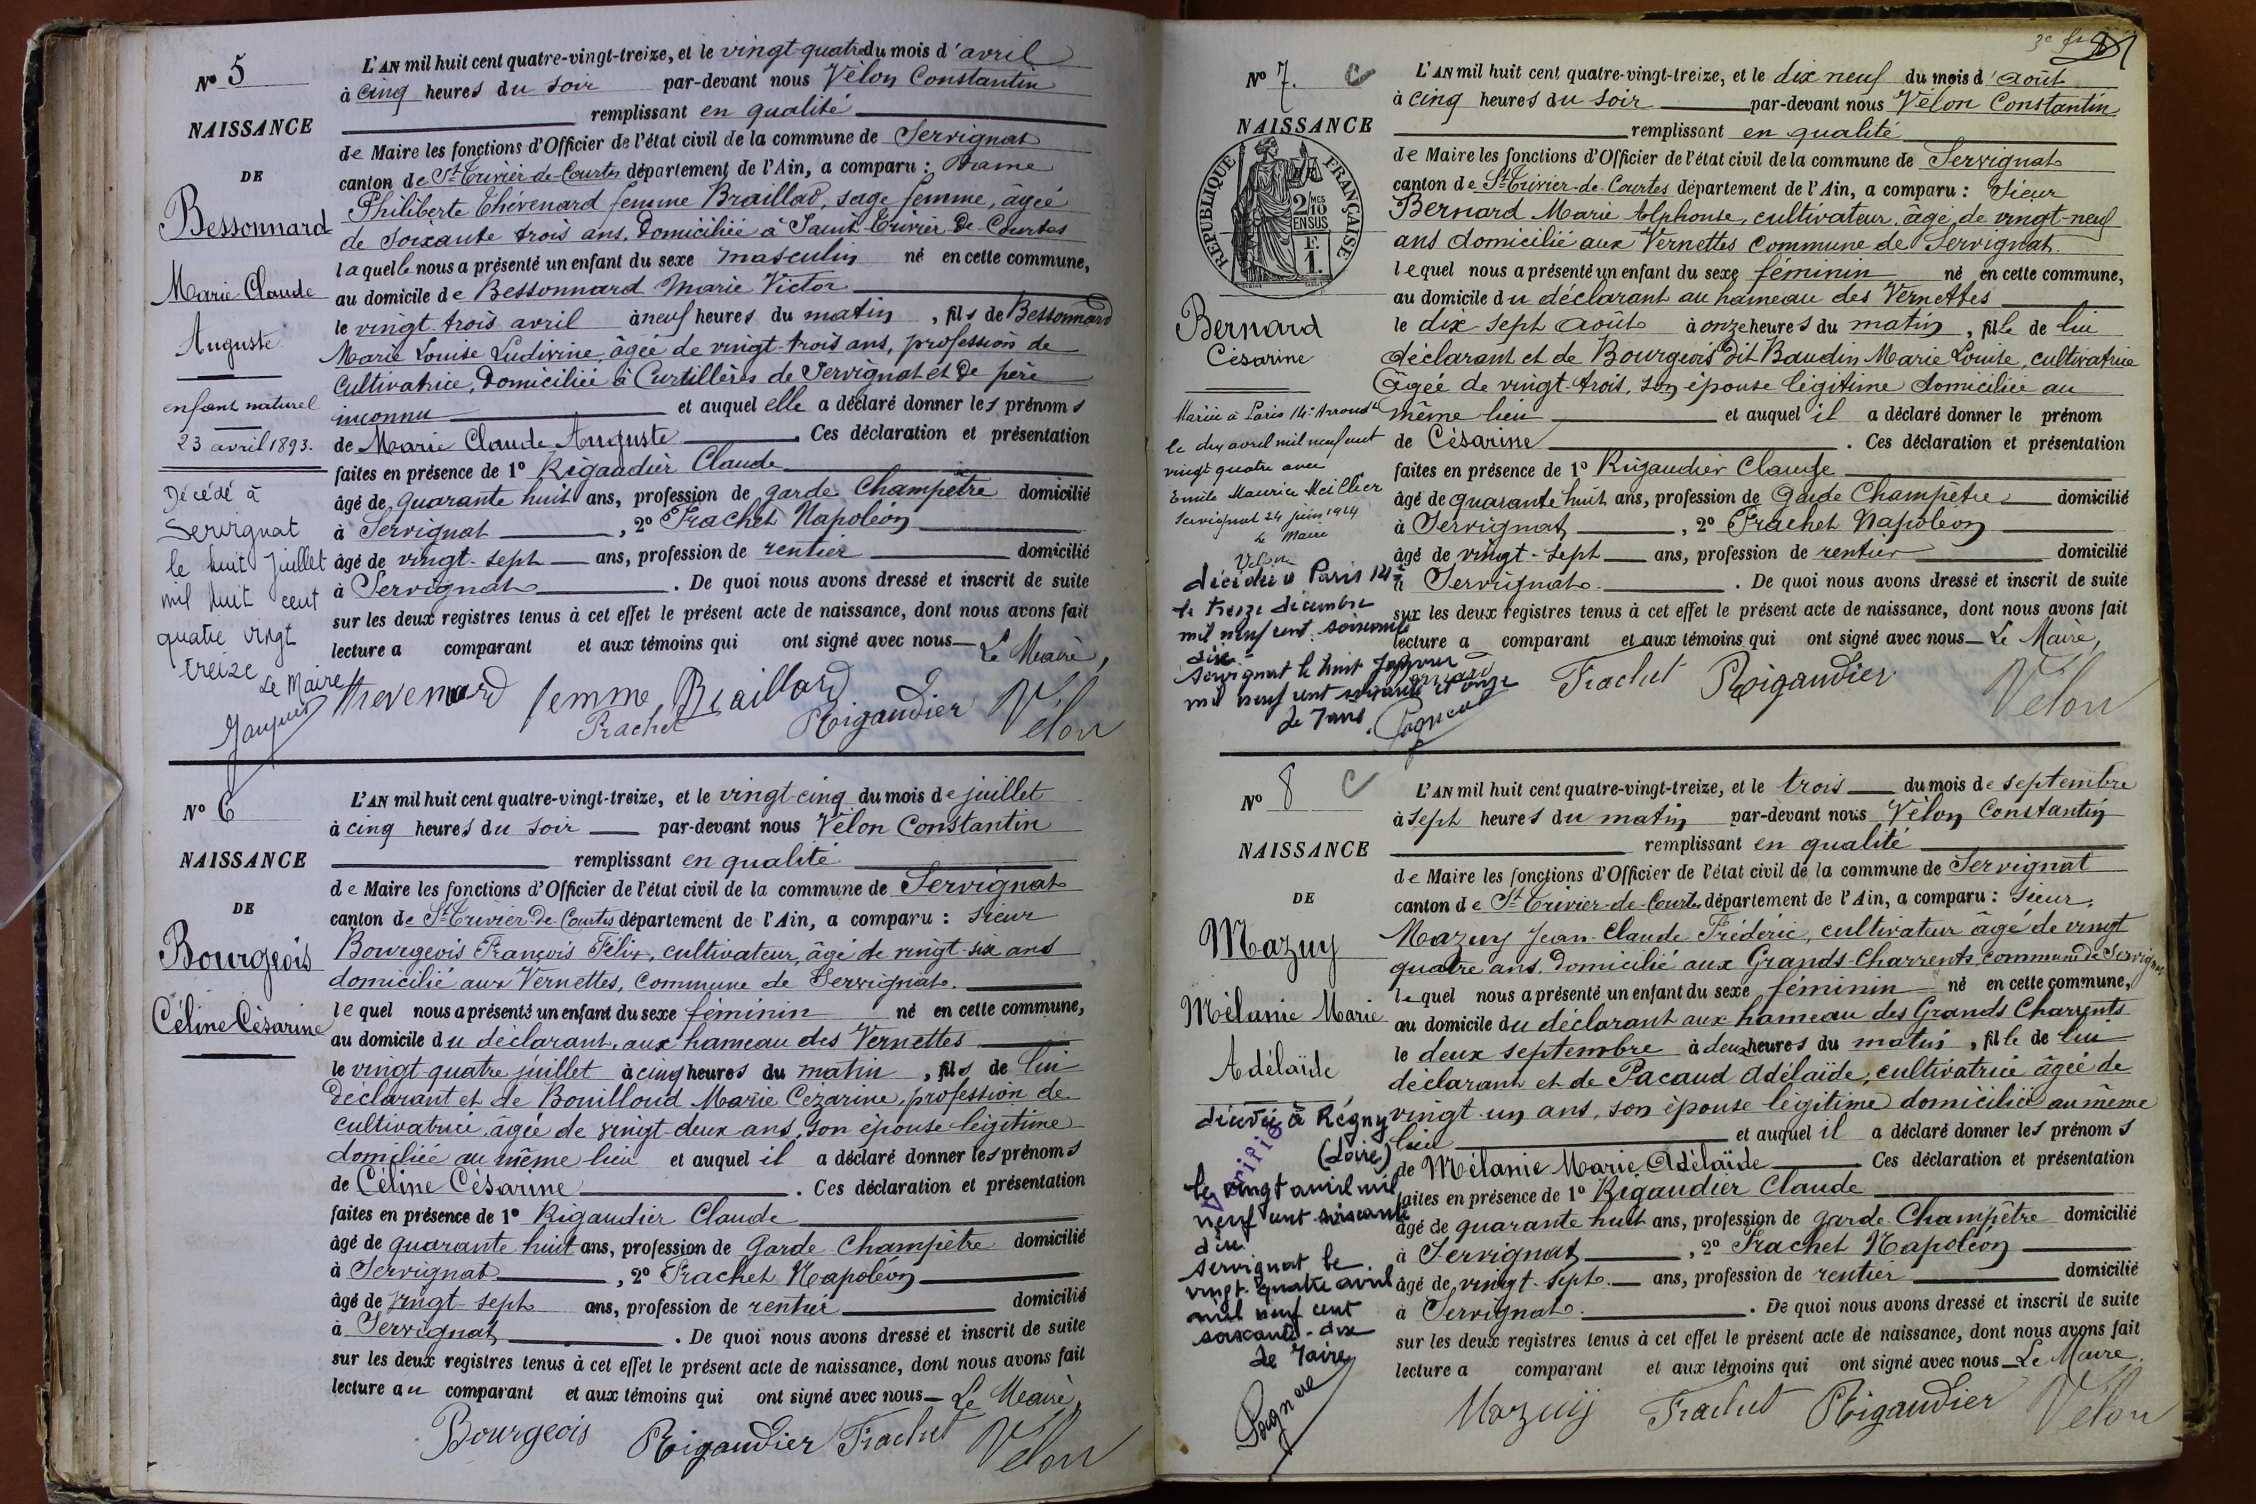 Nº 5
NAISSANCE
DE
Bessonnard
Marie Claude
Auguste
enfant naturel
23 avril 1893.
Décédé à
Servignat
le huit Juillet
mil huit cent
quatre vingt
treize
Le Maire
L'AN mil huit cent quatre-vingt-treize, et le vingt-quatre du mois d'avril
à cinq heures du soir par-devant nous Vélon Constantin
remplissant en qualité
de Maire les fonctions d'Officier de l'état civil de la commune de Servignat
canton de St-Trivier-de-Courtes département de l'Ain, a comparu : Dame
Philiberte Thévenard femme Braillard, sage femme, âgée
de soixante trois ans, Domiciliée à Saint-Trivier-De-Courtes
laquelle nous a présenté un enfant du sexe masculin né en cette commune,
au domicile de Bessonnard Marie Victor
le vingt-trois avril à neuf heures du matin, fils de Bessonnard
Marie Louise Ludivine, âgée de vingt-trois ans, profession de
Cultivatrice, Domiciliée à Curtillères de Servignat et de père
inconnu et auquel elle a déclaré donner les prénoms
de Marie Claude Auguste. Ces déclaration et présentation
faites en présence de 1º Rigaudier Claude
âgé de quarante huit ans, profession de garde Champêtre domicilié
à Servignat, 2º Trachet Napoléon
âgé de vingt-sept ans, profession de rentier domicilié
à Servignat. De quoi nous avons dressé et inscrit de suite
sur les deux registres tenus à cet effet le présent acte de naissance, dont nous avons fait
lecture a comparant et aux témoins qui ont signé avec nous — Le Maire,
Thevenard femme Braillard
Trachet Rigaudier Vélon
Nº 6
NAISSANCE
DE
Bourgeois
Céline Césarine
L'AN mil huit cent quatre-vingt-treize, et le vingt-cinq du mois de juillet
à cinq heures du soir par-devant nous Vélon Constantin
remplissant en qualité
de Maire les fonctions d'Officier de l'état civil de la commune de Servignat
canton de St-Trivier-De-Courtes département de l'Ain, a comparu : sieur
Bourgeois François Félix, cultivateur, âgé de vingt-six ans
domicilié aux Vernettes, Commune de Servignat.
lequel nous a présenté un enfant du sexe féminin né en cette commune,
au domicile du déclarant, aux hameau des Vernettes
le vingt-quatre juillet à cinq heures du matin, fils de lui
Déclarant et de Bouilloud Marie Cézarine, profession de
cultivatrice, âgée de vingt-deux ans, son épouse légitime
domiciliée au même lieu et auquel il a déclaré donner les prénoms
de Céline Césarine. Ces déclaration et présentation
faites en présence de 1º Rigaudier Claude
âgé de quarante huit ans, profession de Garde Champêtre domicilié
à Servignat, 2º Trachet Napoléon
âgé de vingt-sept ans, profession de rentier domicilié
à Servignat. De quoi nous avons dressé et inscrit de suite
sur les deux registres tenus à cet effet le présent acte de naissance, dont nous avons fait
lecture au comparant et aux témoins qui ont signé avec nous — Le Maire,
Bourgeois Rigaudier Trachet Vélon
Nº 7. C
NAISSANCE
RÉPUBLIQUE FRANÇAISE
2 MES
10
EN SUS
F.
1.
Bernard
Césarine
Mariée à Paris 14e Arrondt
le dix avril mil neuf cent
vingt quatre avec
Emile Maurice Meillier
Servignat 24 juin 1924
Le Maire
Vélon
décédée à Paris 14e
le treize décembre
mil neuf cent soixante
dix
Servignat le huit Janvier
mil neuf cent soixante et onze
L'AN mil huit cent quatre-vingt-treize, et le dix neuf du mois d'août
à cinq heures du soir par-devant nous Vélon Constantin
remplissant en qualité
de Maire les fonctions d'Officier de l'état civil de la commune de Servignat
canton de St-Trivier-de-Courtes département de l'Ain, a comparu : sieur
Bernard Marie Alphonse, cultivateur, âgé de vingt-neuf
ans domicilié aux Vernettes Commune de Servignat.
lequel nous a présenté un enfant du sexe féminin né en cette commune,
au domicile du déclarant au hameau des Vernettes
le dix sept août à onze heures du matin, fille de lui
déclarant et de Bourgeois dit Baudin Marie Louise, cultivatrice
âgée de vingt-trois, son épouse légitime domiciliée au
même lieu et auquel il a déclaré donner le prénom
de Césarine. Ces déclaration et présentation
faites en présence de 1º Rigaudier Claude
âgé de quarante huit ans, profession de Garde Champêtre domicilié
à Servignat, 2º Trachet Napoléon
âgé de vingt-sept ans, profession de rentier domicilié
à Servignat. De quoi nous avons dressé et inscrit de suite
sur les deux registres tenus à cet effet le présent acte de naissance, dont nous avons fait
lecture a comparant et aux témoins qui ont signé avec nous — Le Maire,
Trachet Rigaudier Vélon
Nº 8 C
NAISSANCE
DE
Mazuy
Mélanie Marie
Adélaïde
décédée à Régny
(Loire)
le vingt avril mil
neuf cent soixante
dix
Servignat le
vingt-quatre avril
mil neuf cent
soixante-dix
Le Maire
Vérifié
L'AN mil huit cent quatre-vingt-treize, et le trois du mois de septembre
à sept heures du matin par-devant nous Vélon Constantin
remplissant en qualité
de Maire les fonctions d'Officier de l'état civil de la commune de Servignat
canton de St-Trivier-de-Courtes département de l'Ain, a comparu : sieur,
Mazuy Jean-Claude Frédéric, cultivateur âgé de vingt
quatre ans, domicilié aux Grands-Charrents, commune de Servignat
lequel nous a présenté un enfant du sexe féminin né en cette commune,
au domicile du déclarant aux hameau des Grands Charrents
le deux septembre à deux heures du matin, fille de lui
déclarant et de Pacaud Adélaïde, cultivatrice âgée de
vingt-un ans, son épouse légitime domiciliée au même
lieu et auquel il a déclaré donner les prénoms
de Mélanie Marie Adélaïde Ces déclaration et présentation
faites en présence de 1º Rigaudier Claude
âgé de quarante huit ans, profession de garde Champêtre domicilié
à Servignat, 2º Trachet Napoléon
âgé de vingt-sept ans, profession de rentier domicilié
à Servignat. De quoi nous avons dressé et inscrit de suite
sur les deux registres tenus à cet effet le présent acte de naissance, dont nous avons fait
lecture a comparant et aux témoins qui ont signé avec nous — Le Maire.
Mazuy Trachet Rigaudier Vélon